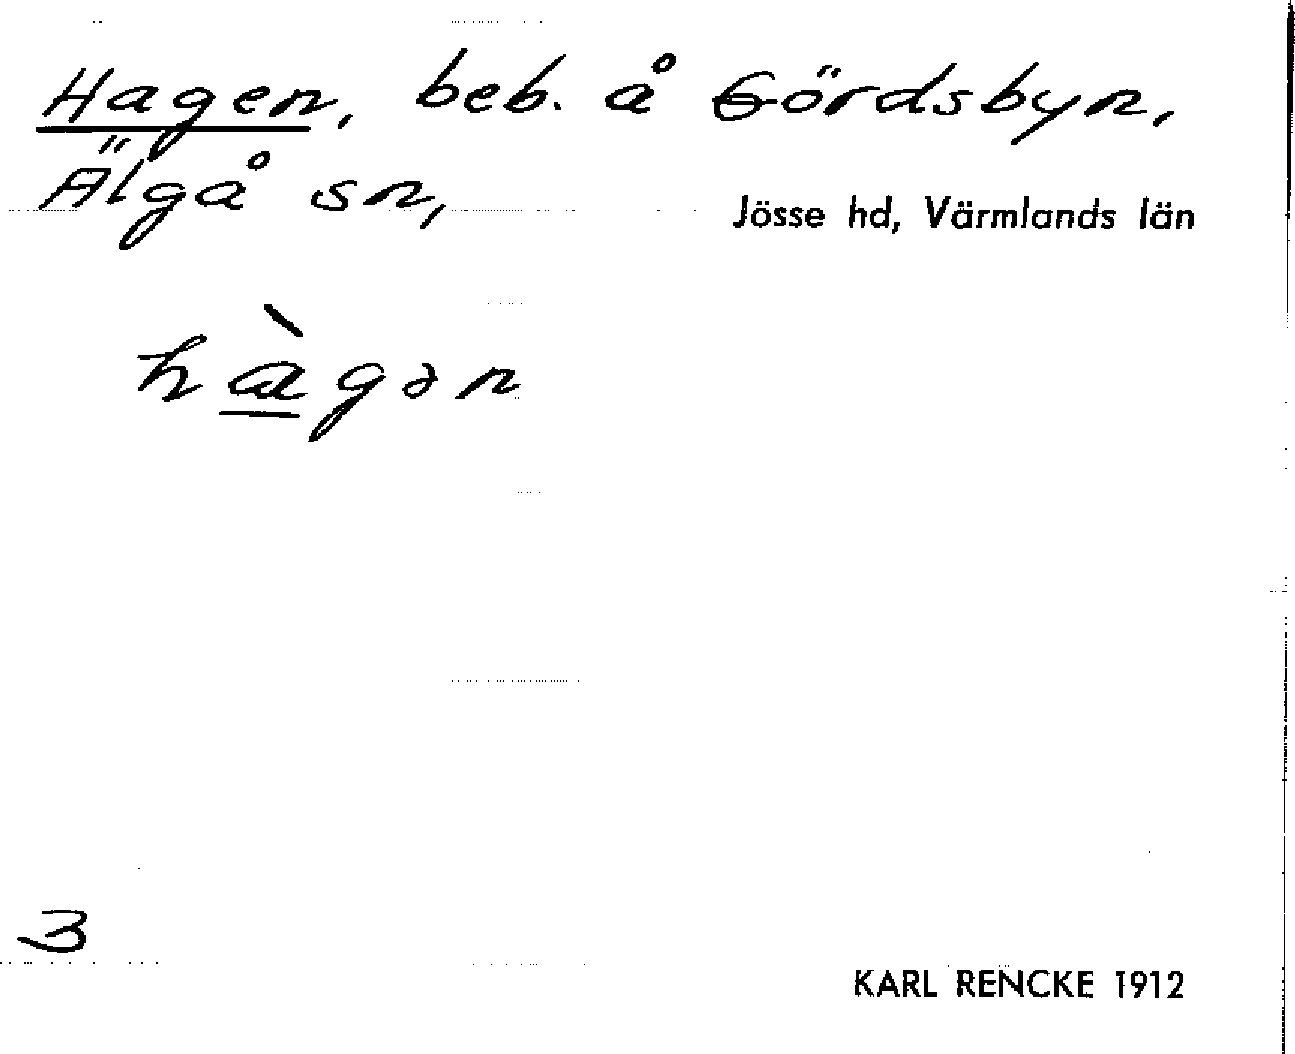 Hagen, beb. å Gördsbyn,
Älgå sn, Jösse hd, Värmlands län
hàgən
3
KARL RENCKE 1912